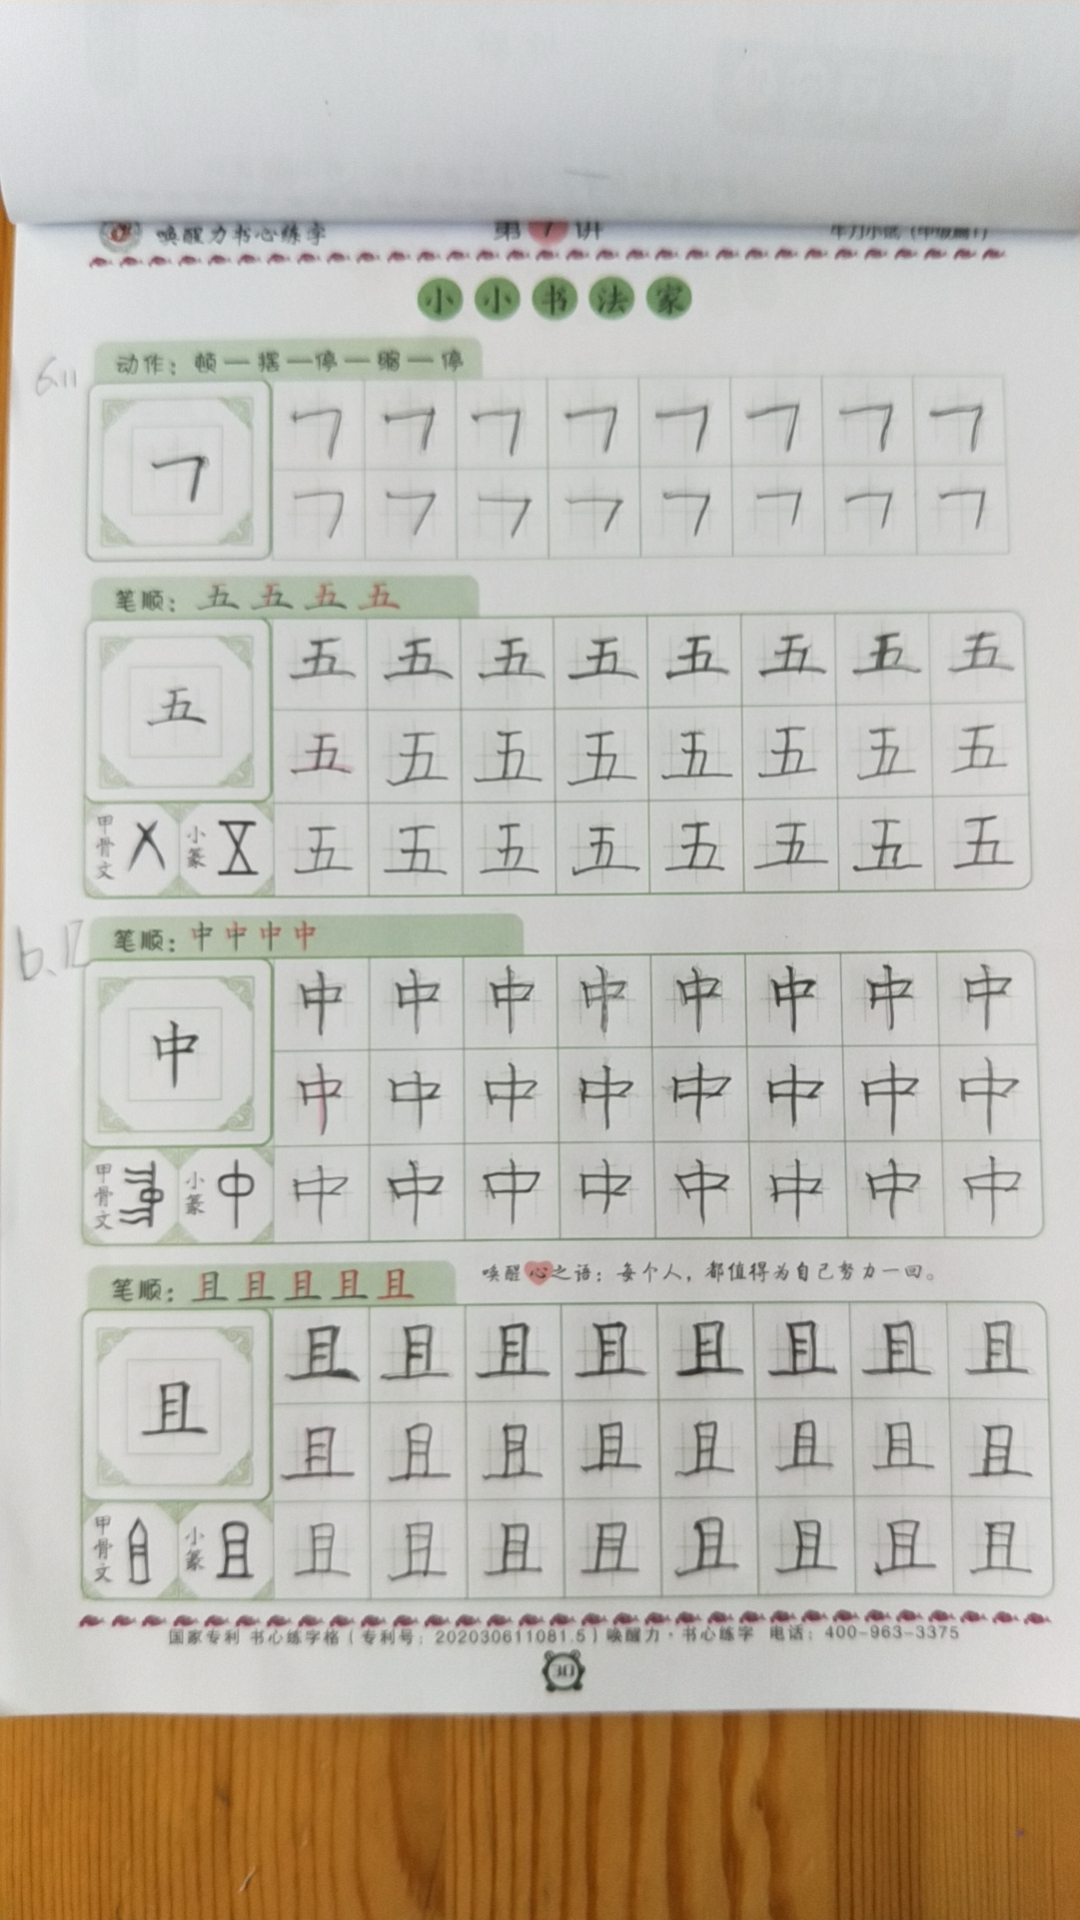 唤醒力书心练字 第7讲
小小书法家
6.11
动作：顿一摆一停一缩一停
笔顺：五五五五
五 五五五五五五五五
五五五五五五五五
甲骨文 小篆 五五五五五五五五
6.12
笔顺：中中中中
中 中中中中中中中中
中中中中中中中中
甲骨文 小篆 中中中中中中中中
笔顺：且且且且且 唤醒心之语：每个人，都值得为自己努力一回。
且 且且且且且且且且
且且且且且且且且
甲骨文 小篆 且且且且且且且且
国家专利 书心练字格（专利号：202030611081.5）唤醒力·书心练字 电话：400-963-3375
30